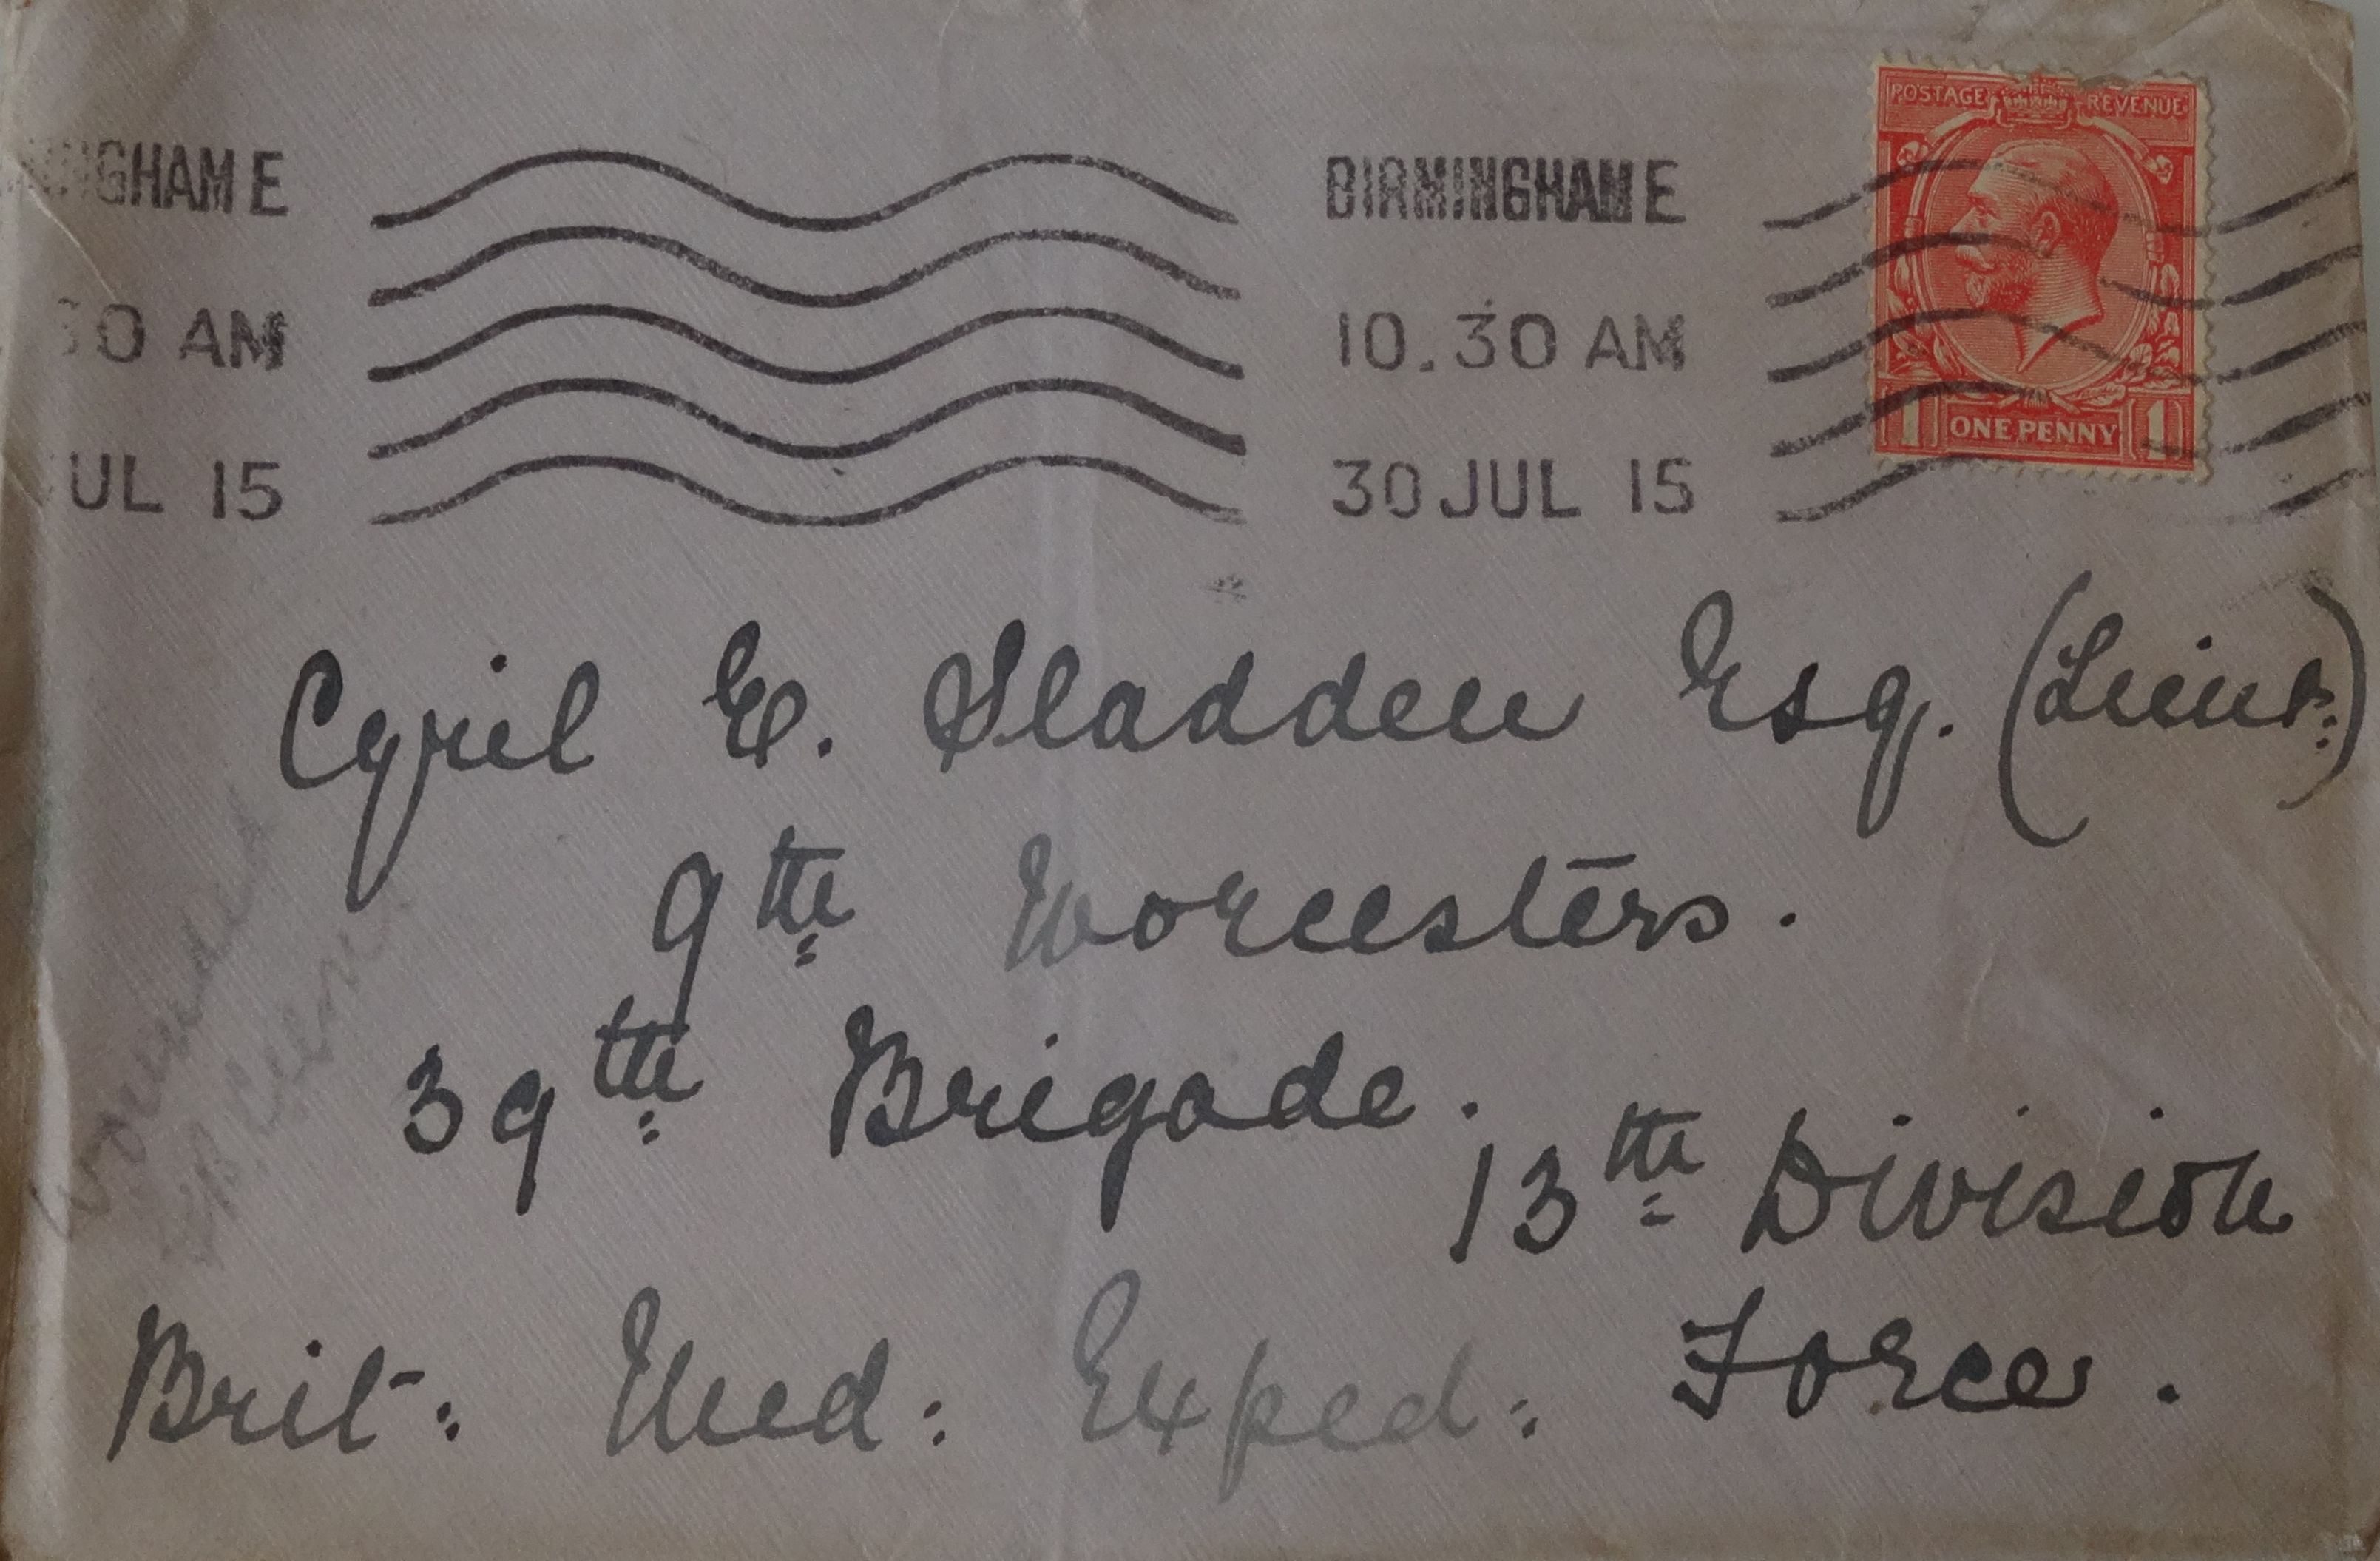 POSTAGE REVENUE
GHAM E BIRMINGHAM E
30 AM 10.30 AM
JUL 15 30 JUL 15
1 ONE PENNY 1
Cyril E. Sladden Esq. (Lieut:)
9th Worcesters.
39th Brigade.
13th Division
Brit: Med: Exped: Force.
wounded